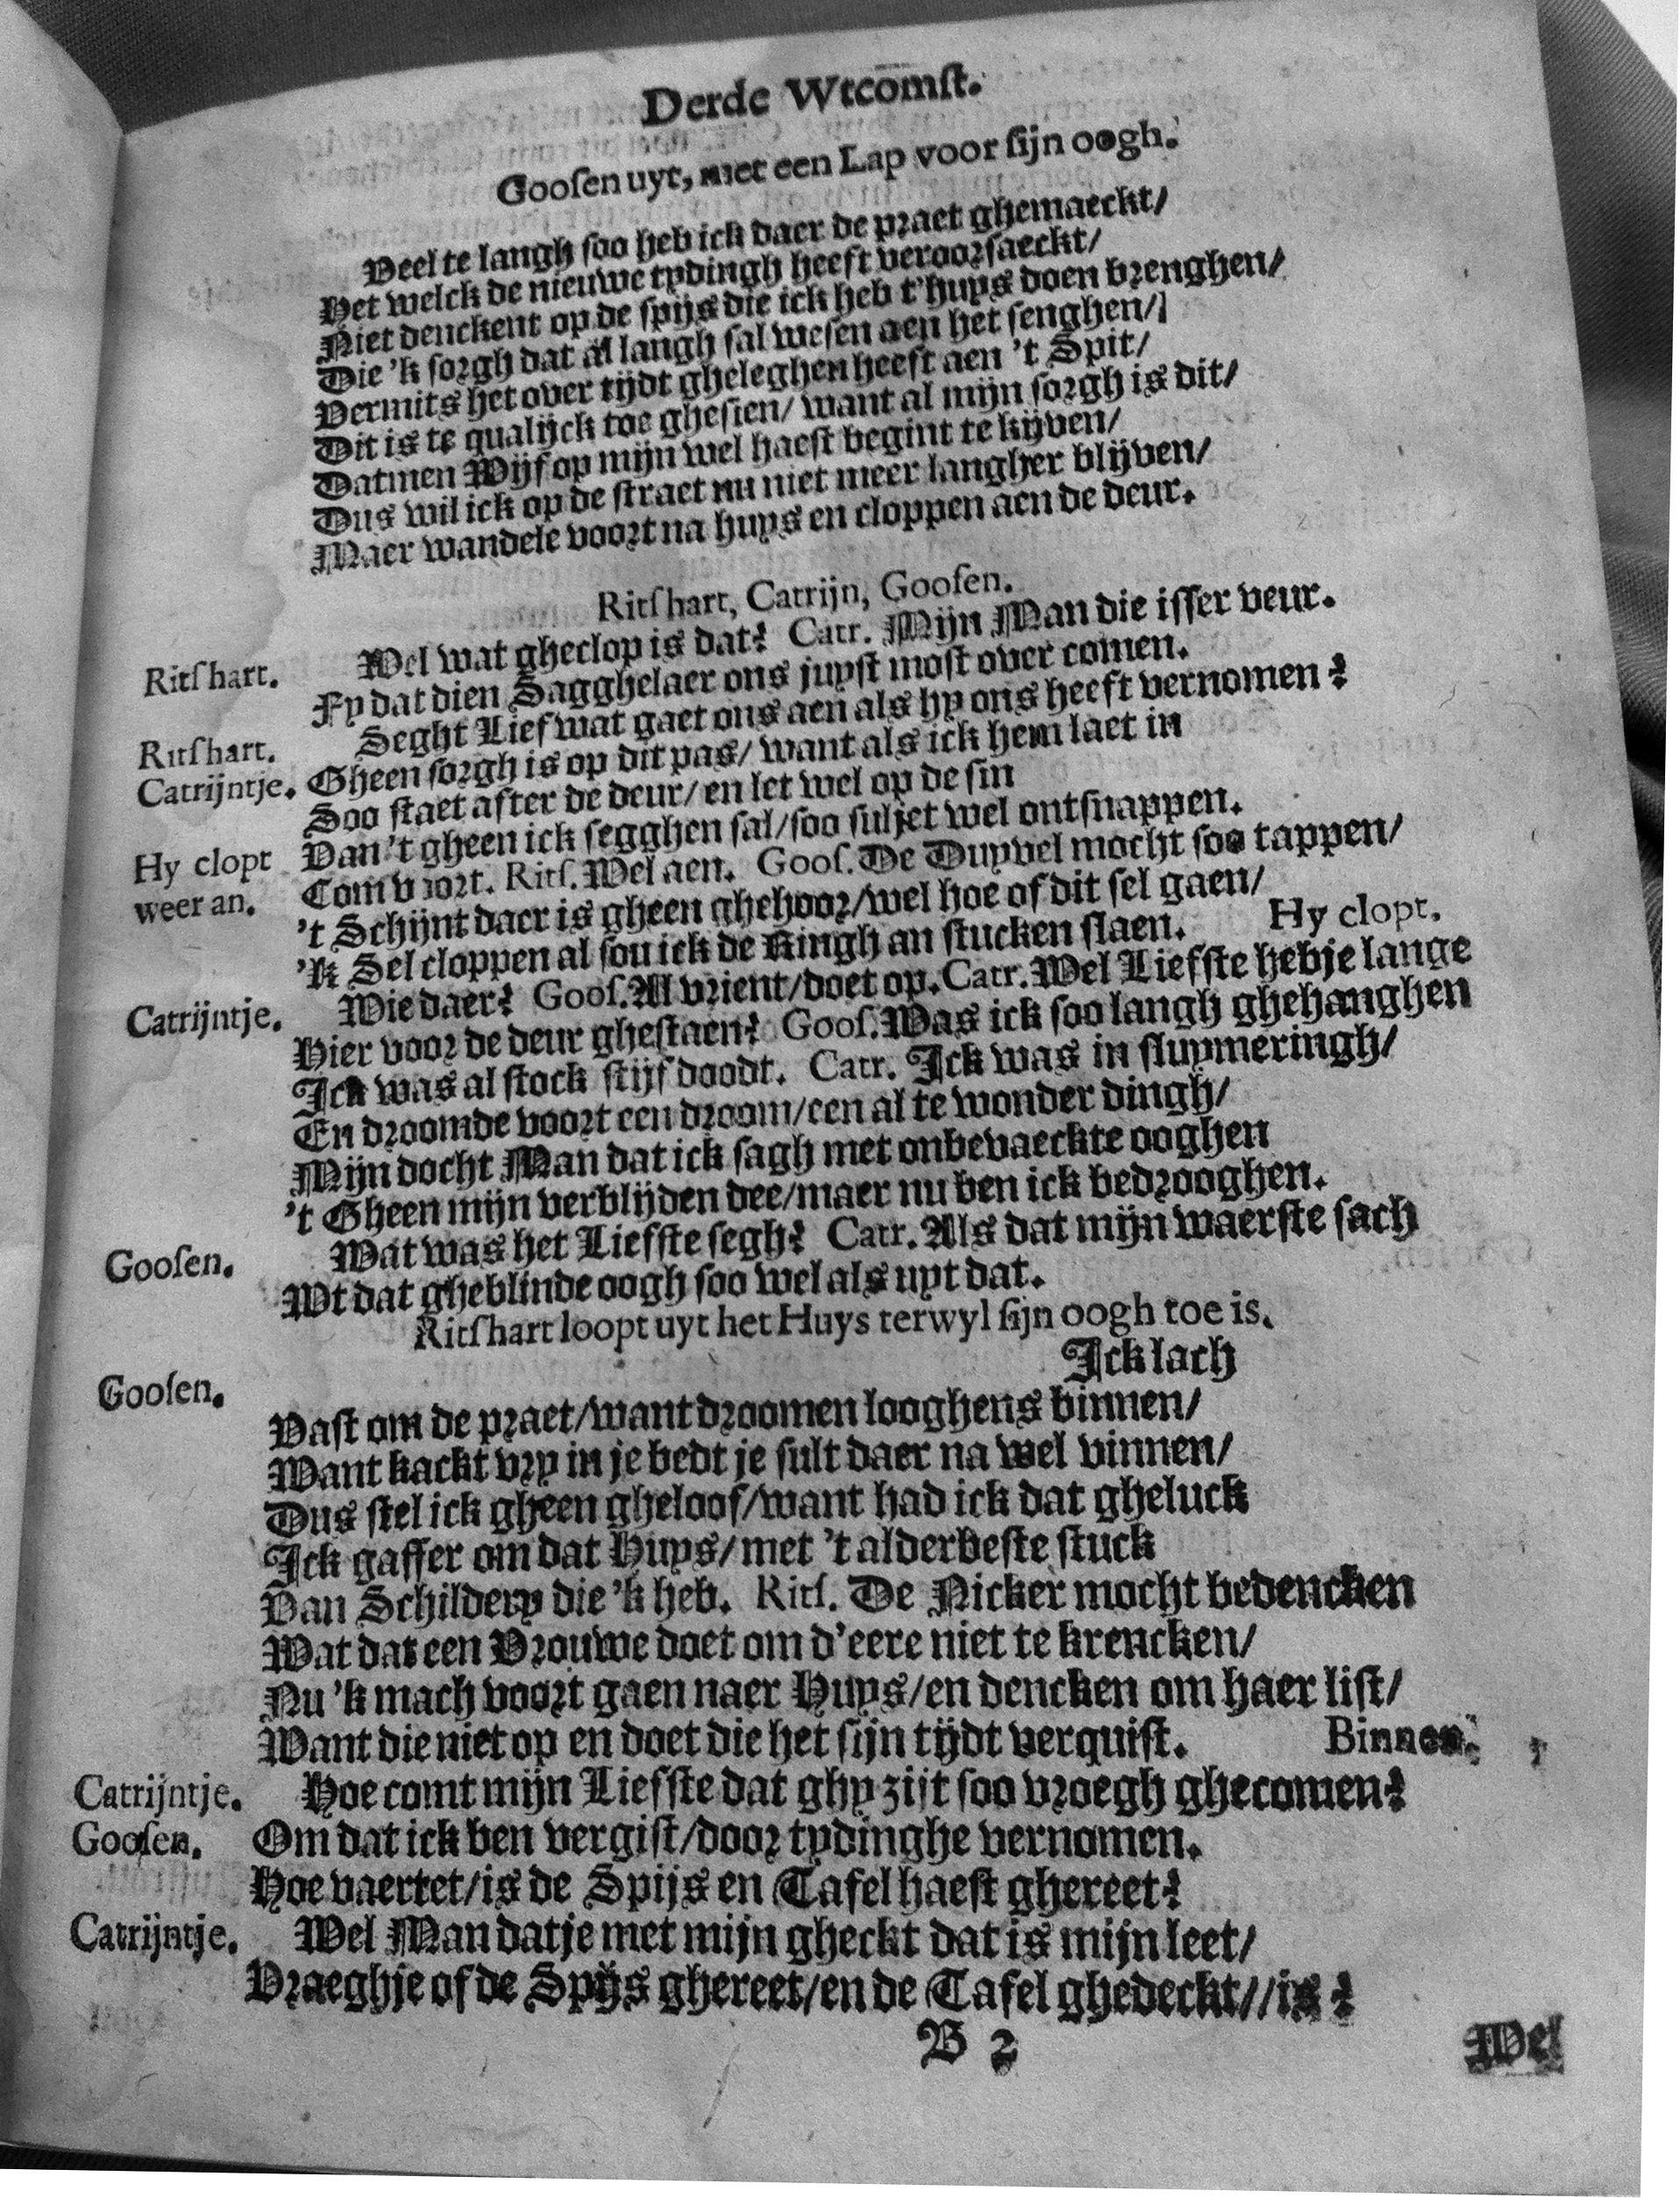 Derde Wtcomſt.
Gooſen uyt, met een Lap voor ſijn oogh.
Veel te langh ſoo heb ick daer de praet ghemaeckt/
Het welck de nieuwe tydingh heeft veroorſaeckt/
Niet denckent op de ſpijs die ick heb t'huys doen brenghen/
Die 'k ſorgh dat al langh ſal weſen aen het ſenghen/
Vermits het over tijdt gheleghen heeft aen 't Spit/
Dit is te qualijck toe gheſien/ want al mijn ſorgh is dit/
Datmen Wijf op mijn wel haeſt begint te kijven/
Dus wil ick op de ſtraet nu niet meer langher blijven/
Maer wandele voort na huys en cloppen aen de deur.
Ritſhart, Catrijn, Gooſen.
Ritſhart. Wel wat gheclop is dat? Catr. Mijn Man die iſſer veur.
Fy dat dien Sagghelaer ons juyſt moſt over comen.
Ritſhart. Seght Lief wat gaet ons aen als hy ons heeft vernomen?
Catrijntje. Gheen ſorgh is op dit pas/ want als ick hem laet in
Soo ſtaet after de deur/ en let wel op de ſin
Hy clopt Van 't gheen ick ſegghen ſal/ ſoo ſuljet wel ontſnappen.
weer an. Com voort. Ritſ. Wel aen. Gooſ. De Duyvel mocht ſoo tappen/
't Schijnt daer is gheen ghehoor/ wel hoe of dit ſel gaen/
'k Sel cloppen al ſou ick de Ringh an ſtucken ſlaen. Hy clopt.
Catrijntje. Wie daer? Gooſ. Al vrient/ doet op. Catr. Wel Liefſte hebje lange
Hier voor de deur gheſtaen? Gooſ. Was ick ſoo langh ghehanghen
Ick was al ſtock ſtijf doodt. Catr. Ick was in ſluymeringh/
En droomde voort een droom/ een al te wonder dingh/
Mijn docht Man dat ick ſagh met onbevaeckte ooghen
't Gheen mijn verblijden dee/ maer nu ben ick bedrooghen.
Gooſen. Wat was het Liefſte ſegh? Catr. Als dat mijn waerſte ſach
Wt dat gheblinde oogh ſoo wel als uyt dat.
Ritſhart loopt uyt het Huys terwyl ſijn oogh toe is.
Gooſen. Ick lach
Vaſt om de praet/ want droomen looghens binnen/
Want kackt vry in je bedt je ſult daer na wel vinnen/
Dus ſtel ick gheen gheloof/ want had ick dat gheluck
Ick gaffer om dat Huys/ met 't alderbeſte ſtuck
Van Schildery die 'k heb. Ritſ. De Nicker mocht bedencken
Wat dat een Vrouwe doet om d'eere niet te krencken/
Nu 'k mach voort gaen naer Huys/ en dencken om haer liſt/
Want die niet op en doet die het ſijn tijdt verquiſt. Binnen.
Catrijntje. Hoe comt mijn Liefſte dat ghy zijt ſoo vroegh ghecomen?
Gooſen. Om dat ick ben vergiſt/ door tydinghe vernomen.
Hoe vaertet/ is de Spijs en Tafel haeſt ghereet?
Catrijntje. Wel Man datje met mijn gheckt dat is mijn leet/
Vraeghje of de Spijs ghereet/ en de Tafel ghedeckt// is?
B 2
Wel